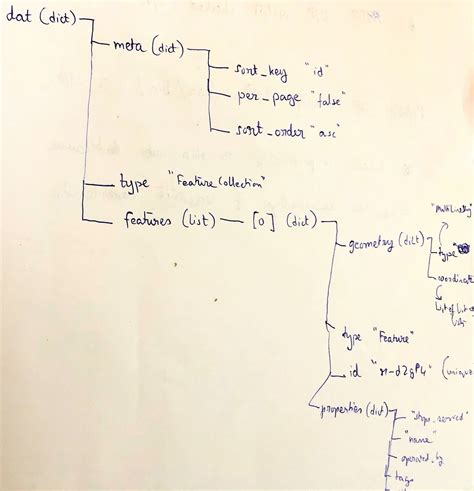 dat (dict)
meta (dict)
sort_key "id"
per_page "false"
sort_order "asc"
type "Feature Collection"
features (list) — [0] (dict)
geometry (dict)
type
coordinate
List of list of
lists
type "Feature"
id (unique
properties (dict)
"name"
operated_by
tags